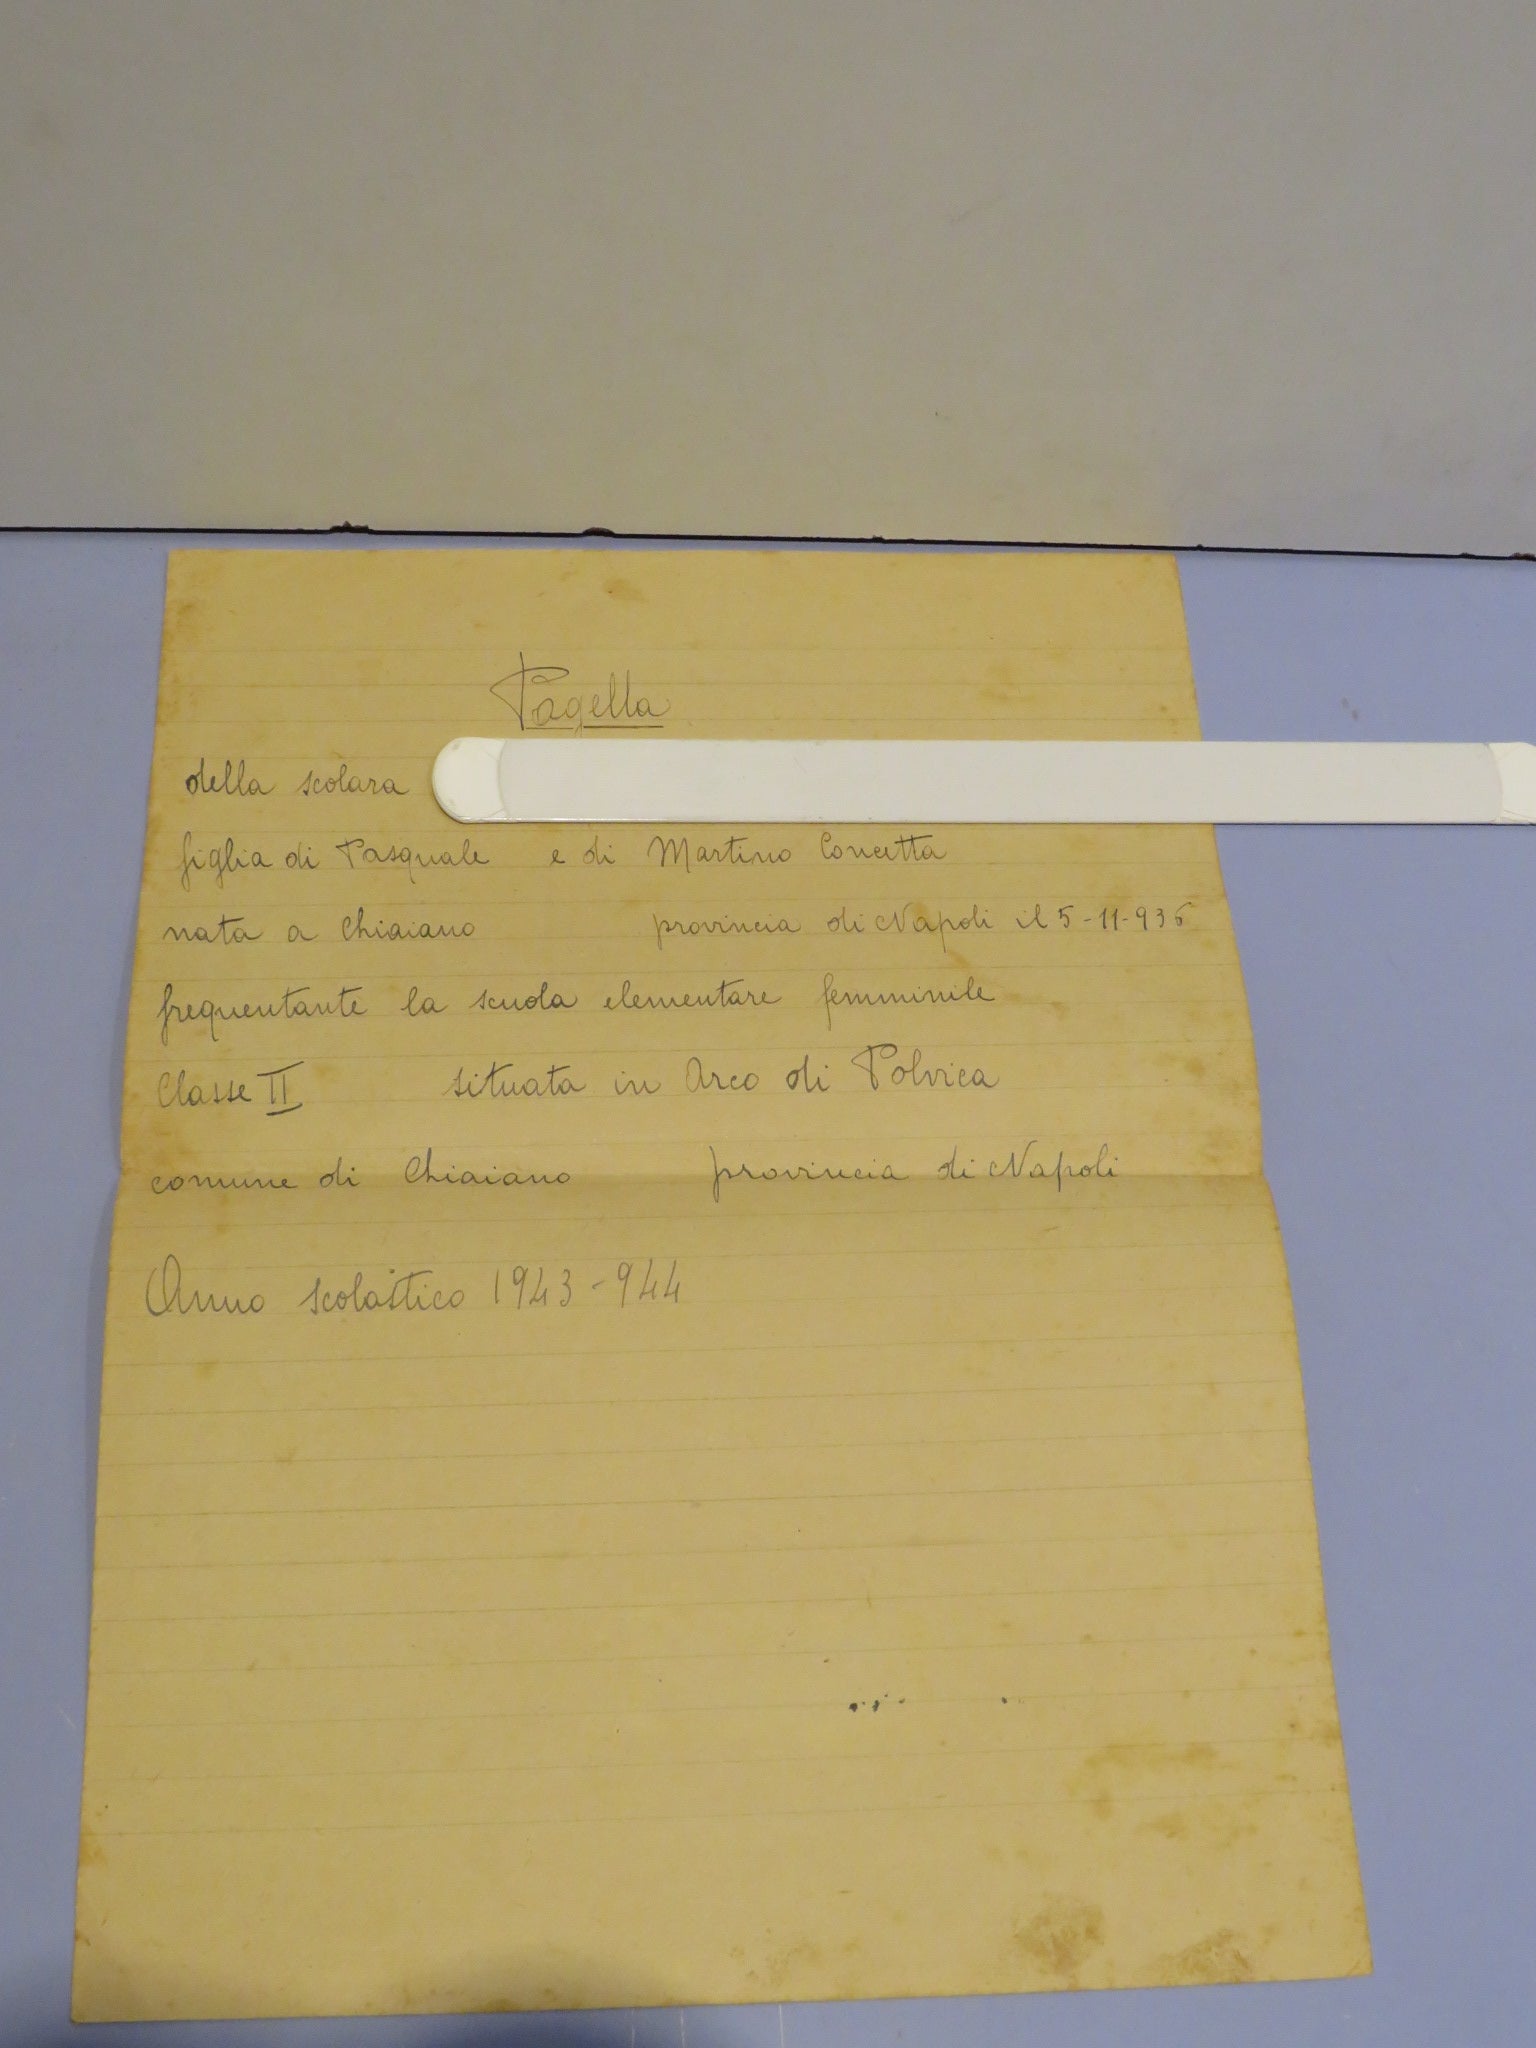 Pagella
della scolara
figlia di Pasquale e di Martino Concetta
nata a Chiaiano provincia di Napoli il 5-11-936
frequentante la scuola elementare femminile
Classe II situata in Arco di Polvica
comune di Chiaiano provincia di Napoli
Anno scolastico 1943-944